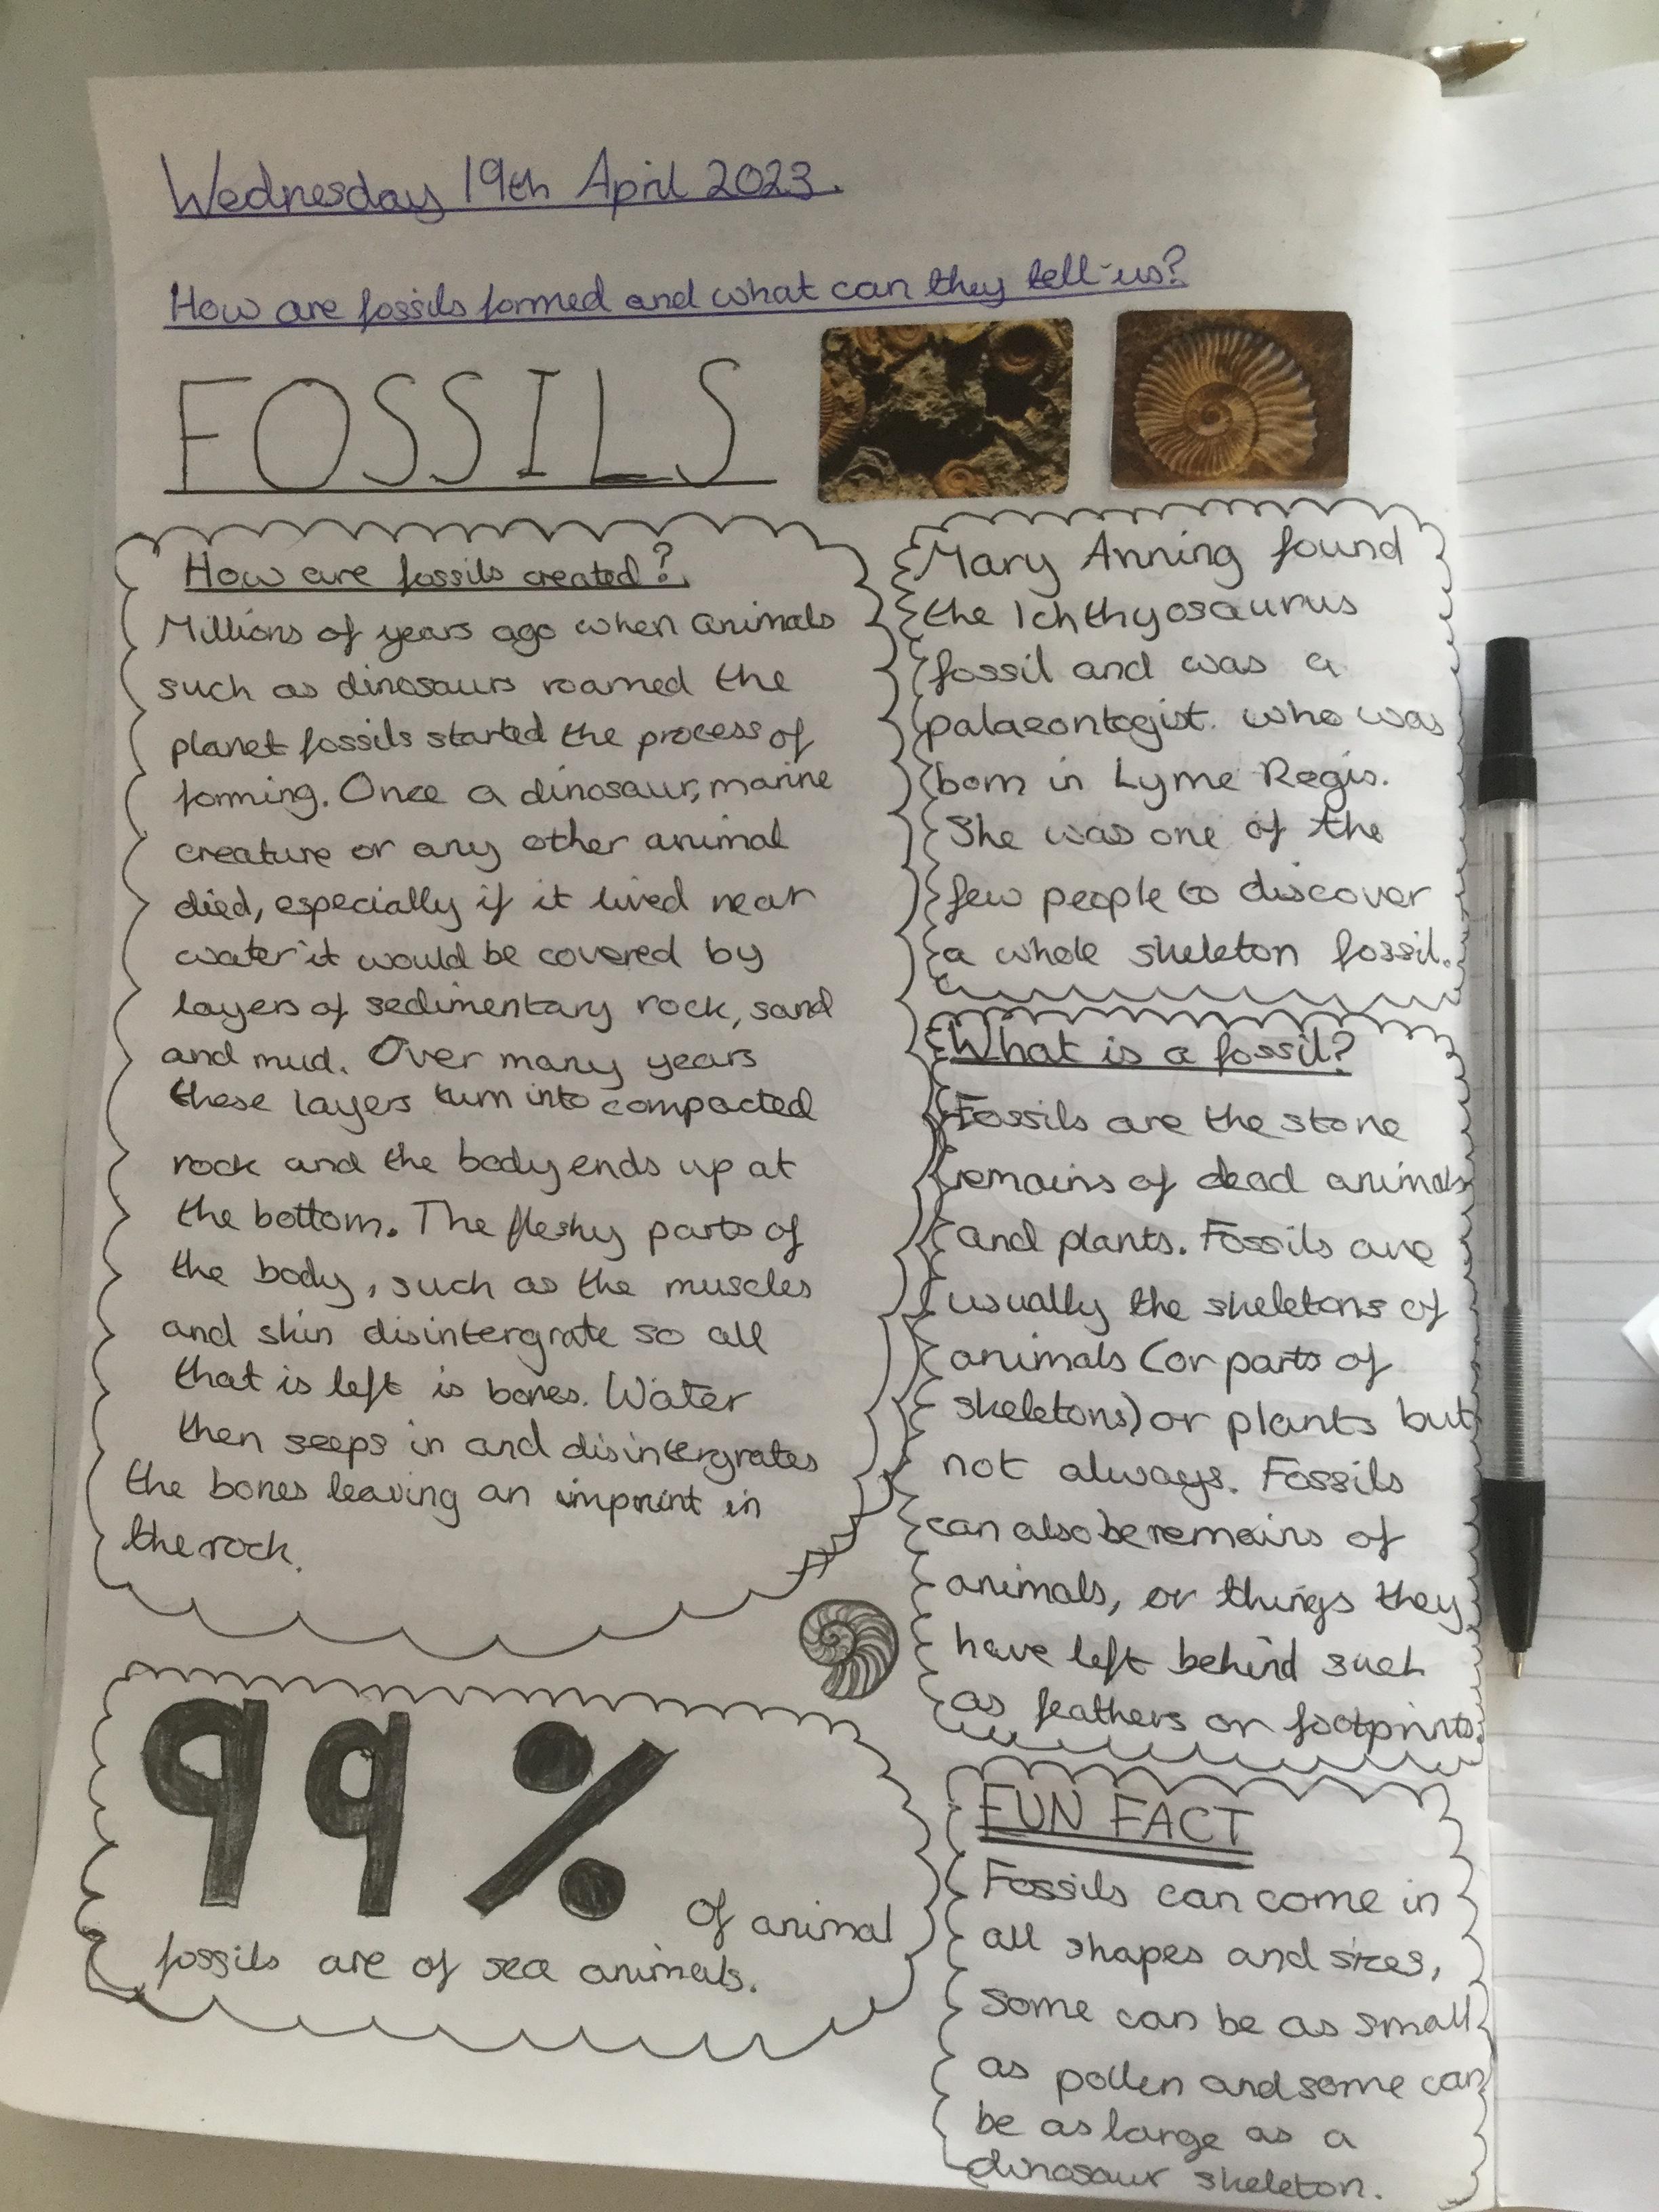 Wednesday 19th April 2023.
How are fossils formed and what can they tell us?
FOSSILS
How are fossils created?
Millions of years ago when animals
such as dinosaurs roamed the
planet fossils started the process of
forming. Once a dinosaur, marine
creature or any other animal
died, especially if it lived near
water it would be covered by
layers of sedimentary rock, sand
and mud. Over many years
these layers turn into compacted
rock and the body ends up at
the bottom. The fleshy parts of
the body, such as the muscles
and skin disintergrate so all
that is left is bones. Water
then seeps in and disintergrates
the bones leaving an imprint in
the rock.
99% of animal
fossils are of sea animals.
Mary Anning found
the Ichthyosaurus
fossil and was a
palaeontogist. who was
born in Lyme Regis.
She was one of the
few people to discover
a whole skeleton fossil.
What is a fossil?
Fossils are the stone
remains of dead animals
and plants. Fossils are
usually the skeletons of
animals (or parts of
skeletons) or plants but
not always. Fossils
can also be remains of
animals, or things they
have left behind such
as feathers or footprints.
FUN FACT
Fossils can come in
all shapes and sizes,
some can be as small
as pollen and some can
be as large as a
dinosaur skeleton.